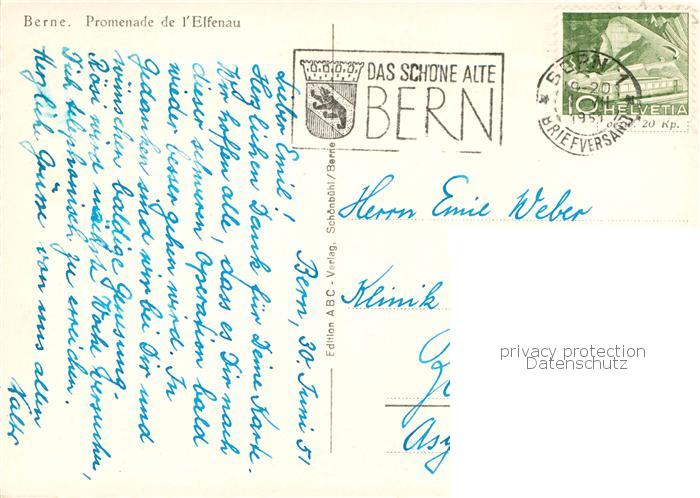 Berne. Promenade de l'Elfenau
DAS SCHÖNE ALTE
BERN
BERN 1
1951
BRIEFVERSAND
10 HELVETIA
20 Rp.
Edition ABC - Verlag, Schönbühl/Berne
Bern, 30. Juni 51
Lieber Emil!
Herzlichen Dank für Deine Karte.
Wir hoffen alle, dass es Dir nach
dieser schweren Operation bald
wieder besser gehen wird. In
Gedanken sind wir bei Dir und
wünschen baldige Genesung.
Rösi wird nächste Woche versuchen,
Dich telephonisch zu erreichen.
Herzlich Grüsse von uns allen
Walter
Herrn Emil Weber
Klinik
privacy protection
Datenschutz